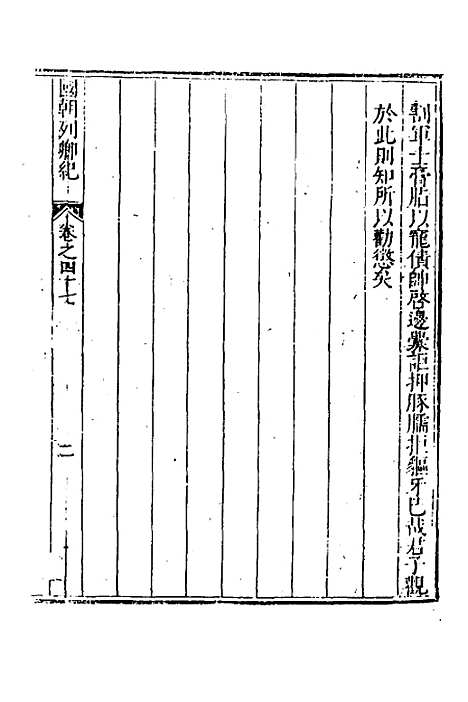 割軍士膏脂以寵債帥啓邊釁詎抑豚臑拒貙牙已哉君子觀
於此則知所以勸懲矣
國朝列卿紀
卷之四十七
二